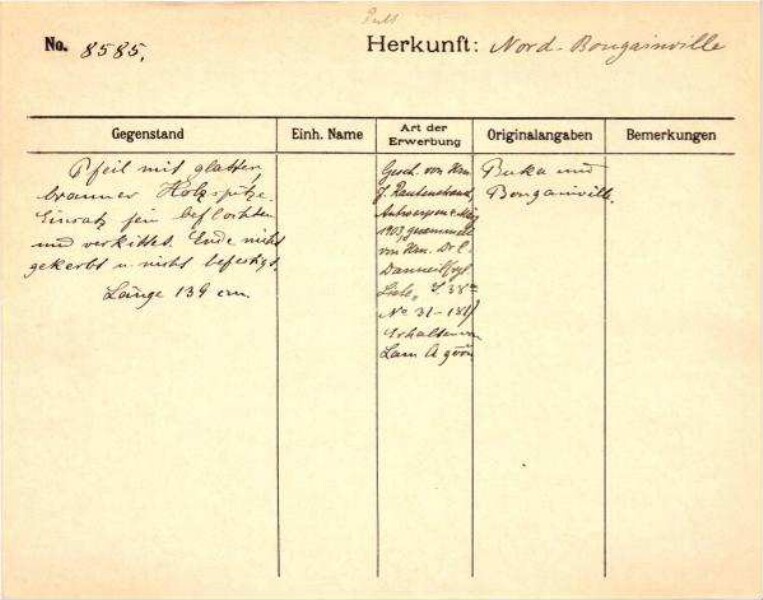 No. 8585.
Herkunft: Nord-Bougainville
Gegenstand
Einh. Name
Art der Erwerbung
Originalangaben
Bemerkungen
Pfeil mit glatter,
brauner Holzspitze.
Einsatz fein beflochten
und verkittet. Ende nicht
gekerbt u. nicht befestigt.
Länge 139 cm.
Gesch. von Hrn.
J. Rautenstrauch,
Antwerpen
1903, gesammelt
von Hrn. Dr. C.
Liste
No 31-
Erhalten von
Buka und
Bougainville.